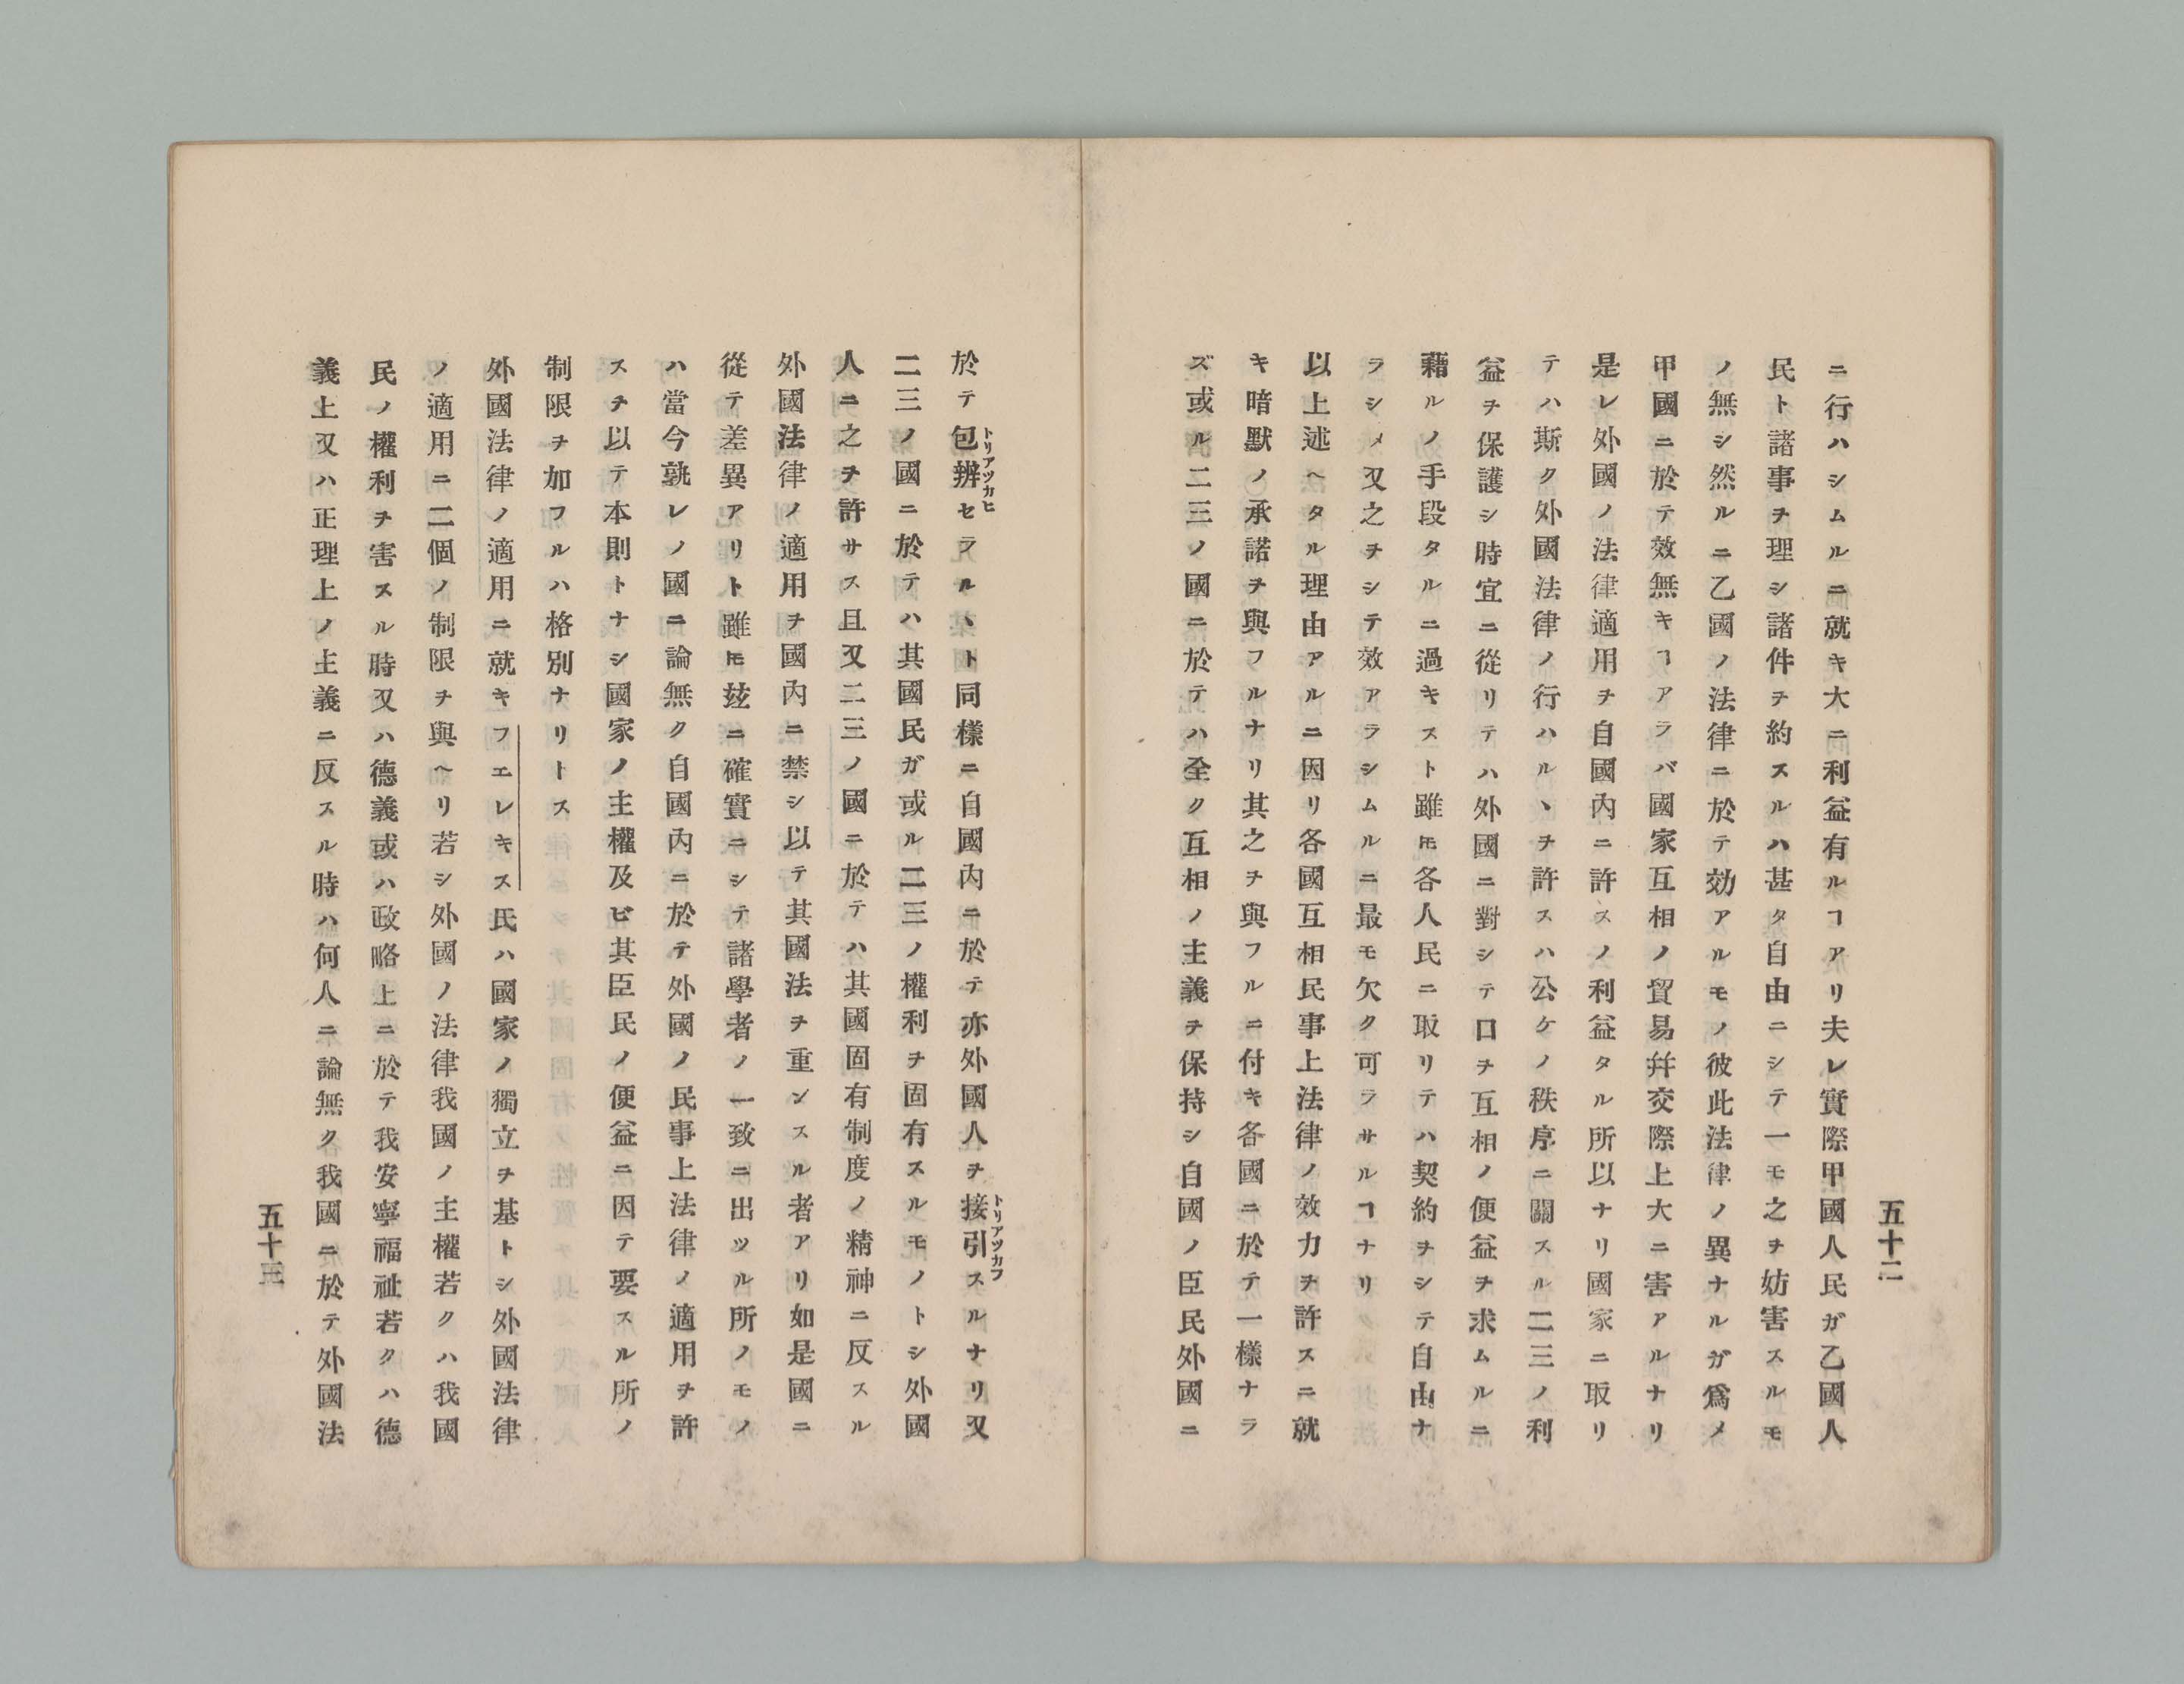 五十二
ニ行ハシムルニ就キ大ニ利益有ルヿアリ夫レ實際甲國人民ガ乙國人
民ト諸事ヲ理シ諸件ヲ約スルハ甚タ自由ニシテ一モ之ヲ妨害スルモ
ノ無シ然ルニ乙國ノ法律ニ於テ効アルモノ彼此法律ノ異ナルガ爲メ
甲國ニ於テ效無キヿアラバ國家互相ノ貿易幷交際上大ニ害アルナリ
是レ外國ノ法律適用ヲ自國内ニ許スノ利益タル所以ナリ國家ニ取リ
テハ斯ク外國法律ノ行ハルヽヲ許スハ公ケノ秩序ニ關スル二三ノ利
益ヲ保護シ時宜ニ從リテハ外國ニ對シテ口ヲ互相ノ便益ヲ求ムルニ
藉ルノ手段タルニ過キスト雖𪜈各人民ニ取リテハ契約ヲシテ自由ナ
ラシメ又之ヲシテ效アラシムルニ最モ欠ク可ラサルヿナリ
以上述ヘタル理由アルニ因リ各國互相民事上法律ノ效力ヲ許スニ就
キ暗默ノ承諾ヲ與フルナリ其之ヲ與フルニ付キ各國ニ於テ一樣ナラ
ズ或ル二三ノ國ニ於テハ全ク互相ノ主義ヲ保持シ自國ノ臣民外國ニ
於テ包辨セラルヽト同樣ニ自國内ニ於テ亦外國人ヲ接引スルナリ又
トリアツカヒ
トリアツカフ
二三ノ國ニ於テハ其國民ガ或ル二三ノ權利ヲ固有スルモノトシ外國
人ニ之ヲ許サス且又二三ノ國ニ於テハ其國固有制度ノ精神ニ反スル
外國法律ノ適用ヲ國内ニ禁シ以テ其國法ヲ重ンスル者アリ如是國ニ
從テ差異アリト雖𪜈玆ニ確實ニシテ諸學者ノ一致ニ出ツル所ノモノ
ハ當今孰レノ國ニ論無ク自國内ニ於テ外國ノ民事上法律ノ適用ヲ許
スヲ以テ本則トナシ國家ノ主權及ビ其臣民ノ便益ニ因テ要スル所ノ
制限ヲ加フルハ格別ナリトス
外國法律ノ適用ニ就キフエレキス氏ハ國家ノ獨立ヲ基トシ外國法律
ノ適用ニ二個ノ制限ヲ與ヘリ若シ外國ノ法律我國ノ主權若クハ我國
民ノ權利ヲ害スル時又ハ德義或ハ政略上ニ於テ我安寧福祉若クハ德
義上又ハ正理上ノ主義ニ反スル時ハ何人ニ論無ク我國ニ於テ外國法
五十三